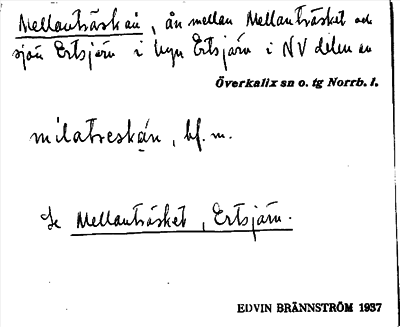 Mellanträskån, ån mellan Mellanträsket och
sjön Ertsjärv i byn Ertsjärv i NV delen av
Överkalix sn o. tg Norrb. l.
milatreskán, bf. m.
Se Mellanträsket, Ertsjärv.
EDVIN BRÄNNSTRÖM 1937